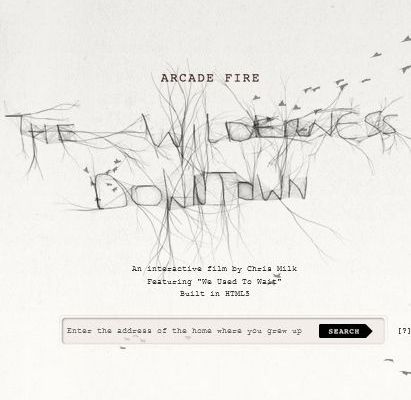 ARCADE FIRE
THE WILDERNESS
DOWNTOWN
An interactive film by Chris Milk
Featuring "We Used To Wait"
Built in HTML5
Enter the address of the home where you grew up SEARCH [?]